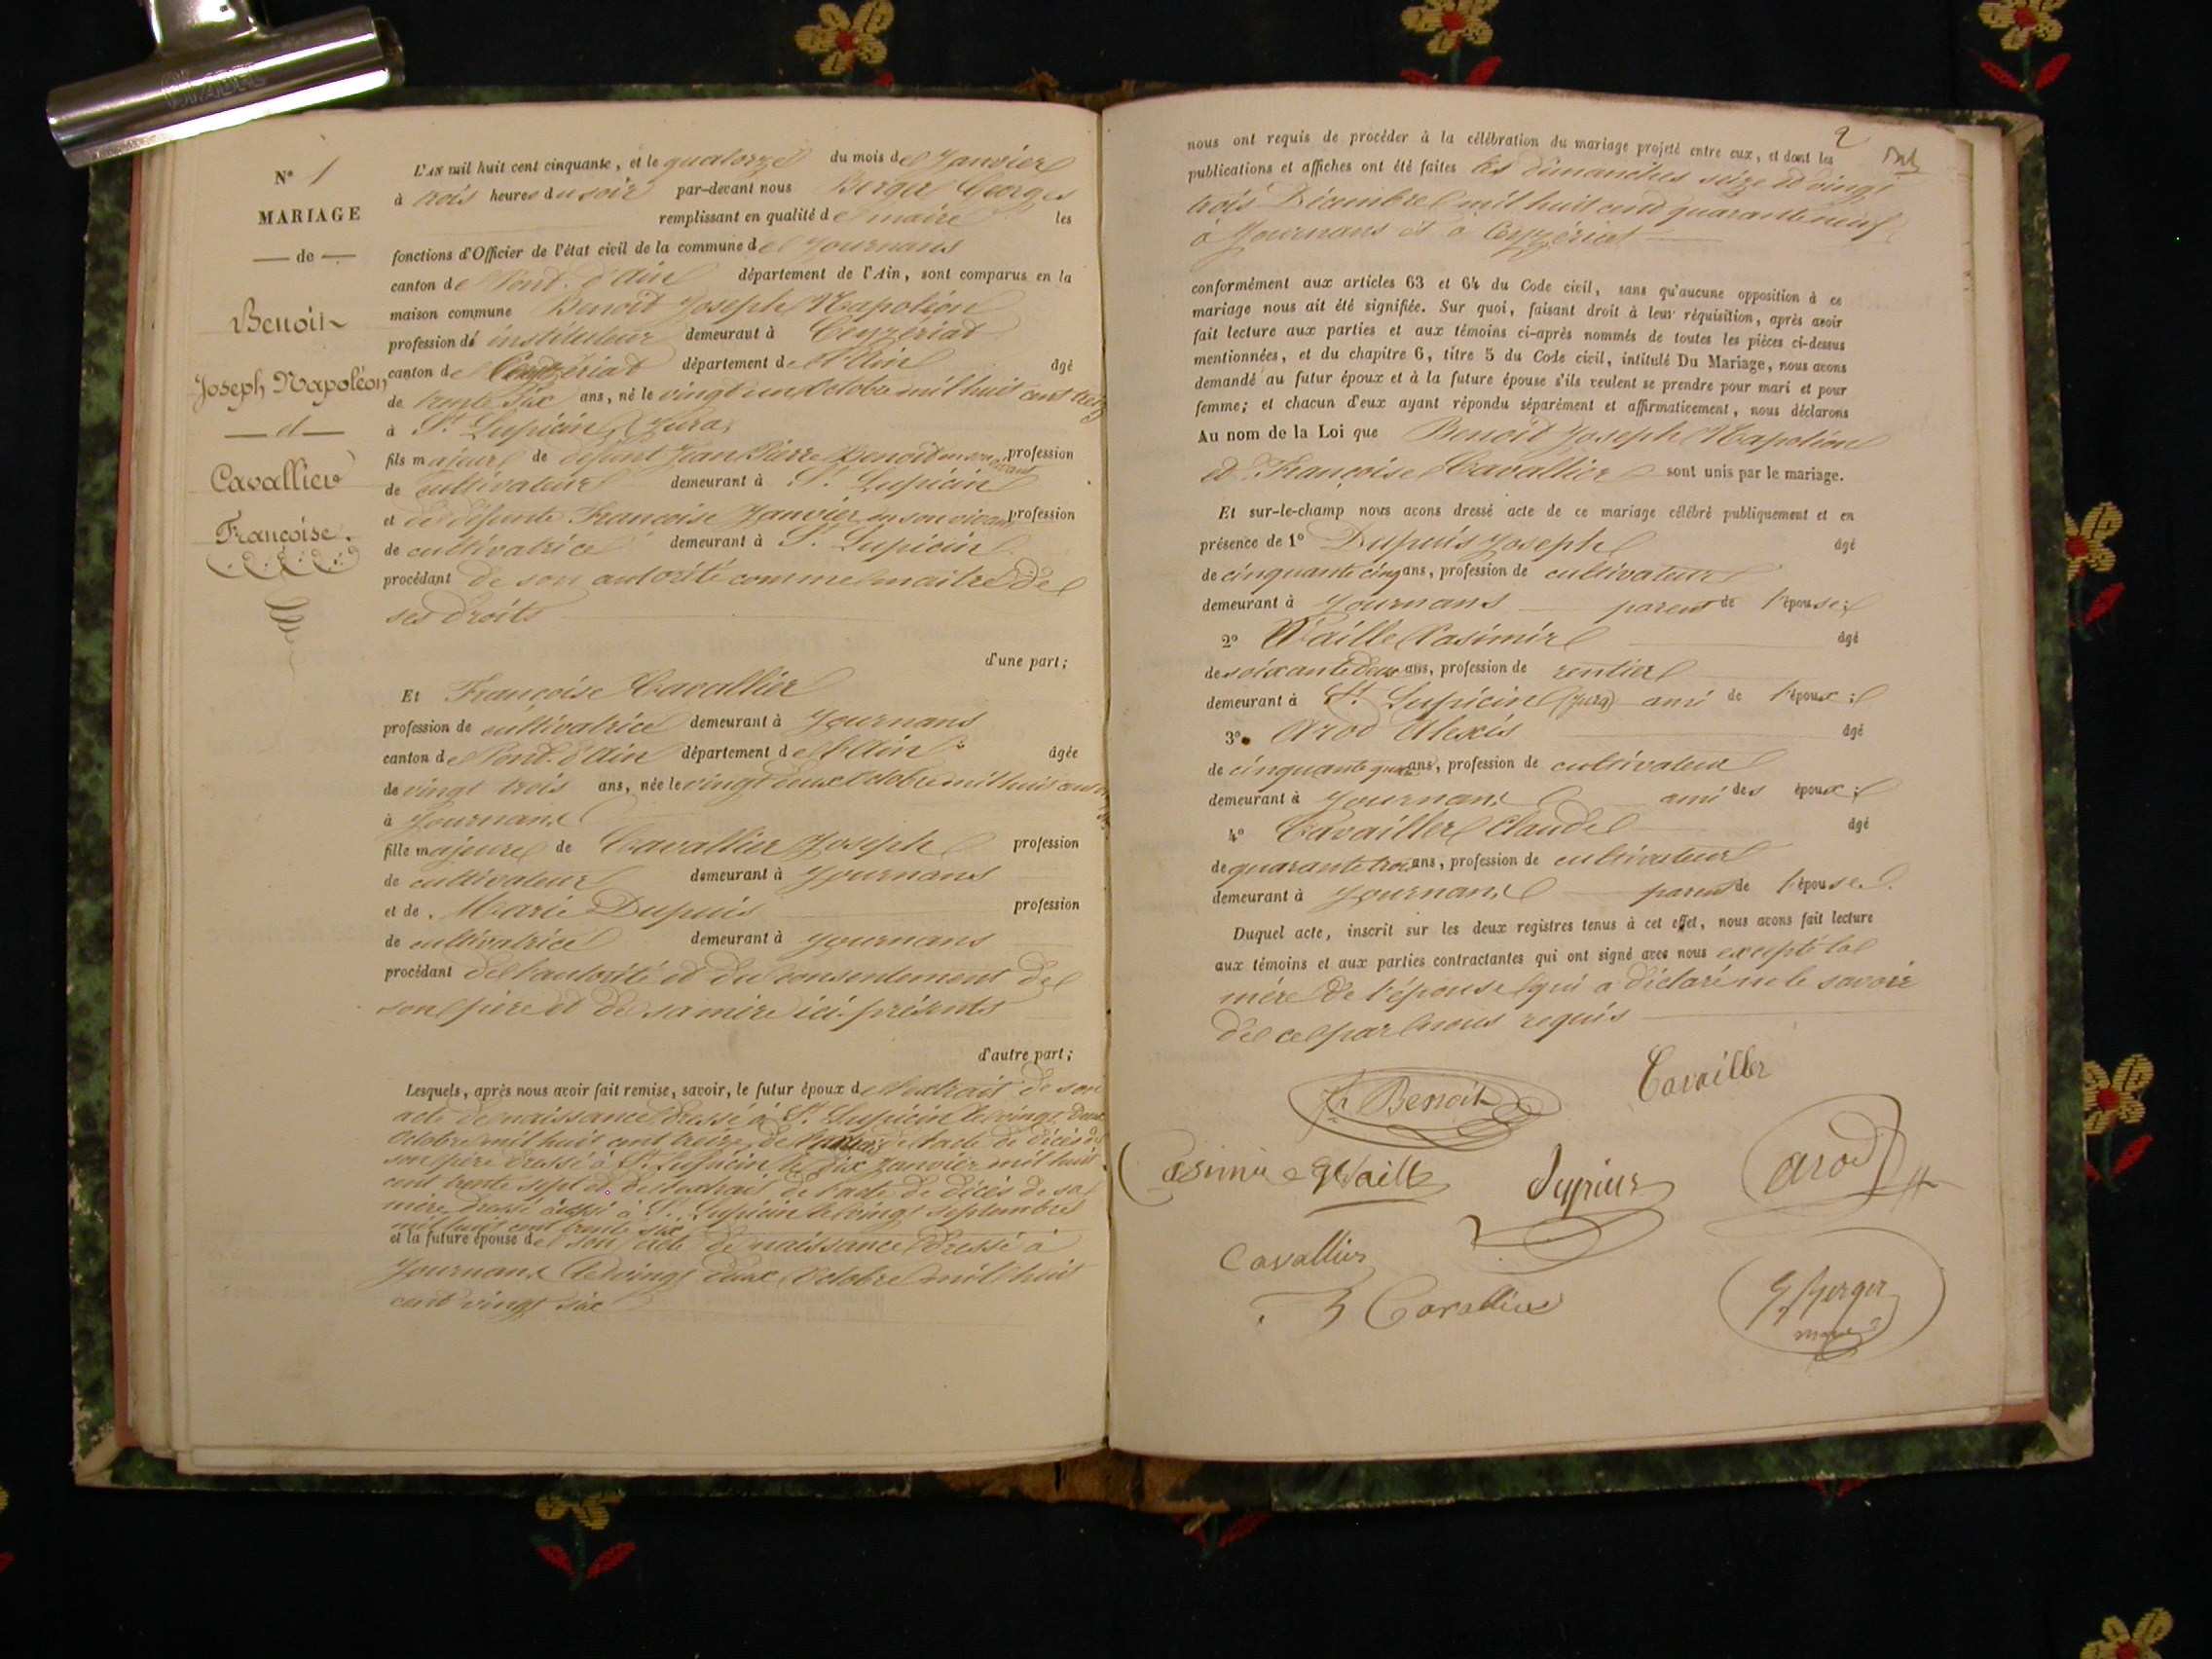 N° 1
MARIAGE
de
Benoit
Joseph Napoléon
et
Cavallier
Françoise.
L'AN mil huit cent cinquante, et le quatorze du mois de Janvier
à trois heures du soir par-devant nous Berger Georges
remplissant en qualité de maire les
fonctions d'Officier de l'état civil de la commune de Journans
canton de Pont-d'Ain département de l'Ain, sont comparus en la
maison commune Benoit Joseph Napoléon
profession d' instituteur demeurant à Ceyzeriat
canton de Ceyzeriat département de l'Ain âgé
de trente six ans, né le vingt un Octobre mil huit cent treize
à St. Lupicin (Jura)
fils majeur de défunt Jean Pierre Benoit en son vivant profession
de cultivateur demeurant à St. Lupicin
et de défunte Françoise Janvier en son vivant profession
de cultivatrice demeurant à St. Lupicin
procédant de son autorité comme maître de
ses droits
d'une part;
Et Françoise Cavallier
profession de cultivatrice demeurant à Journans
canton de Pont-d'Ain département de l'Ain âgée
de vingt trois ans, née le vingt deux Octobre mil huit cent
à Journans
fille majeure de Cavallier Joseph profession
de cultivateur demeurant à Journans
et de Marie Dupuis profession
de cultivatrice demeurant à Journans
procédant de l'autorité et du consentement de
son père et de sa mère ici présents
d'autre part;
Lesquels, après nous avoir fait remise, savoir, le futur époux de l'extrait de son
acte de naissance dressé à St. Lupicin le vingt deux
Octobre mil huit cent treize, de l'extrait de l'acte de décès de
son père dressé à St. Lupicin le dix Janvier mil huit
cent trente sept et de l'extrait de l'acte de décès de sa
mère dressé aussi à St. Lupicin le vingt Septembre
mil huit cent trente six
et la future épouse de son acte de naissance dressé à
Journans le vingt deux Octobre mil huit
cent vingt six
2
nous ont requis de procéder à la célébration du mariage projeté entre eux, et dont les
publications et affiches ont été faites les dimanches seize et vingt
trois Décembre mil huit cent quarante neuf
à Journans et à Ceyzeriat
conformément aux articles 63 et 64 du Code civil, sans qu'aucune opposition à ce
mariage nous ait été signifiée. Sur quoi, faisant droit à leur réquisition, après avoir
fait lecture aux parties et aux témoins ci-après nommés de toutes les pièces ci-dessus
mentionnées, et du chapitre 6, titre 5 du Code civil, intitulé Du Mariage, nous avons
demandé au futur époux et à la future épouse s'ils veulent se prendre pour mari et pour
femme; et chacun d'eux ayant répondu séparément et affirmativement, nous déclarons
Au nom de la Loi que Benoit Joseph Napoléon
et Françoise Cavallier sont unis par le mariage.
Et sur-le-champ nous avons dressé acte de ce mariage célébré publiquement et en
présence de 1° Dupuis Joseph âgé
de cinquante cinq ans, profession de cultivateur
demeurant à Journans parent de l'épouse;
2° Waille Casimir âgé
de soixante deux ans, profession de rentier
demeurant à St. Lupicin (Jura) ami de l'époux;
3° Arod Alexis âgé
de cinquante quatre ans, profession de cultivateur
demeurant à Journans ami des époux;
4° Cavailler Claude âgé
de quarante trois ans, profession de cultivateur
demeurant à Journans parent de l'épouse.
Duquel acte, inscrit sur les deux registres tenus à cet effet, nous avons fait lecture
aux témoins et aux parties contractantes qui ont signé avec nous excepté la
mère de l'épouse qui a déclaré ne le savoir
de ce par nous requis
Benoit
Cavailler
Casimir Waille
Dupuis
Arod
Cavallier
Cavallier
G Berger
maire